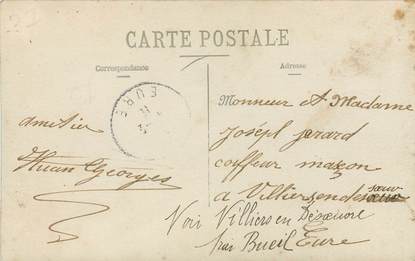 CARTE POSTALE
Correspondance
Adresse
EURE
amitier
Huan Georges
Monsieur et Madame
Joséph Jerard
coiffeur maxon
a Villiersende
Voir Villiers en Désoeuvre
par Bueil Eure